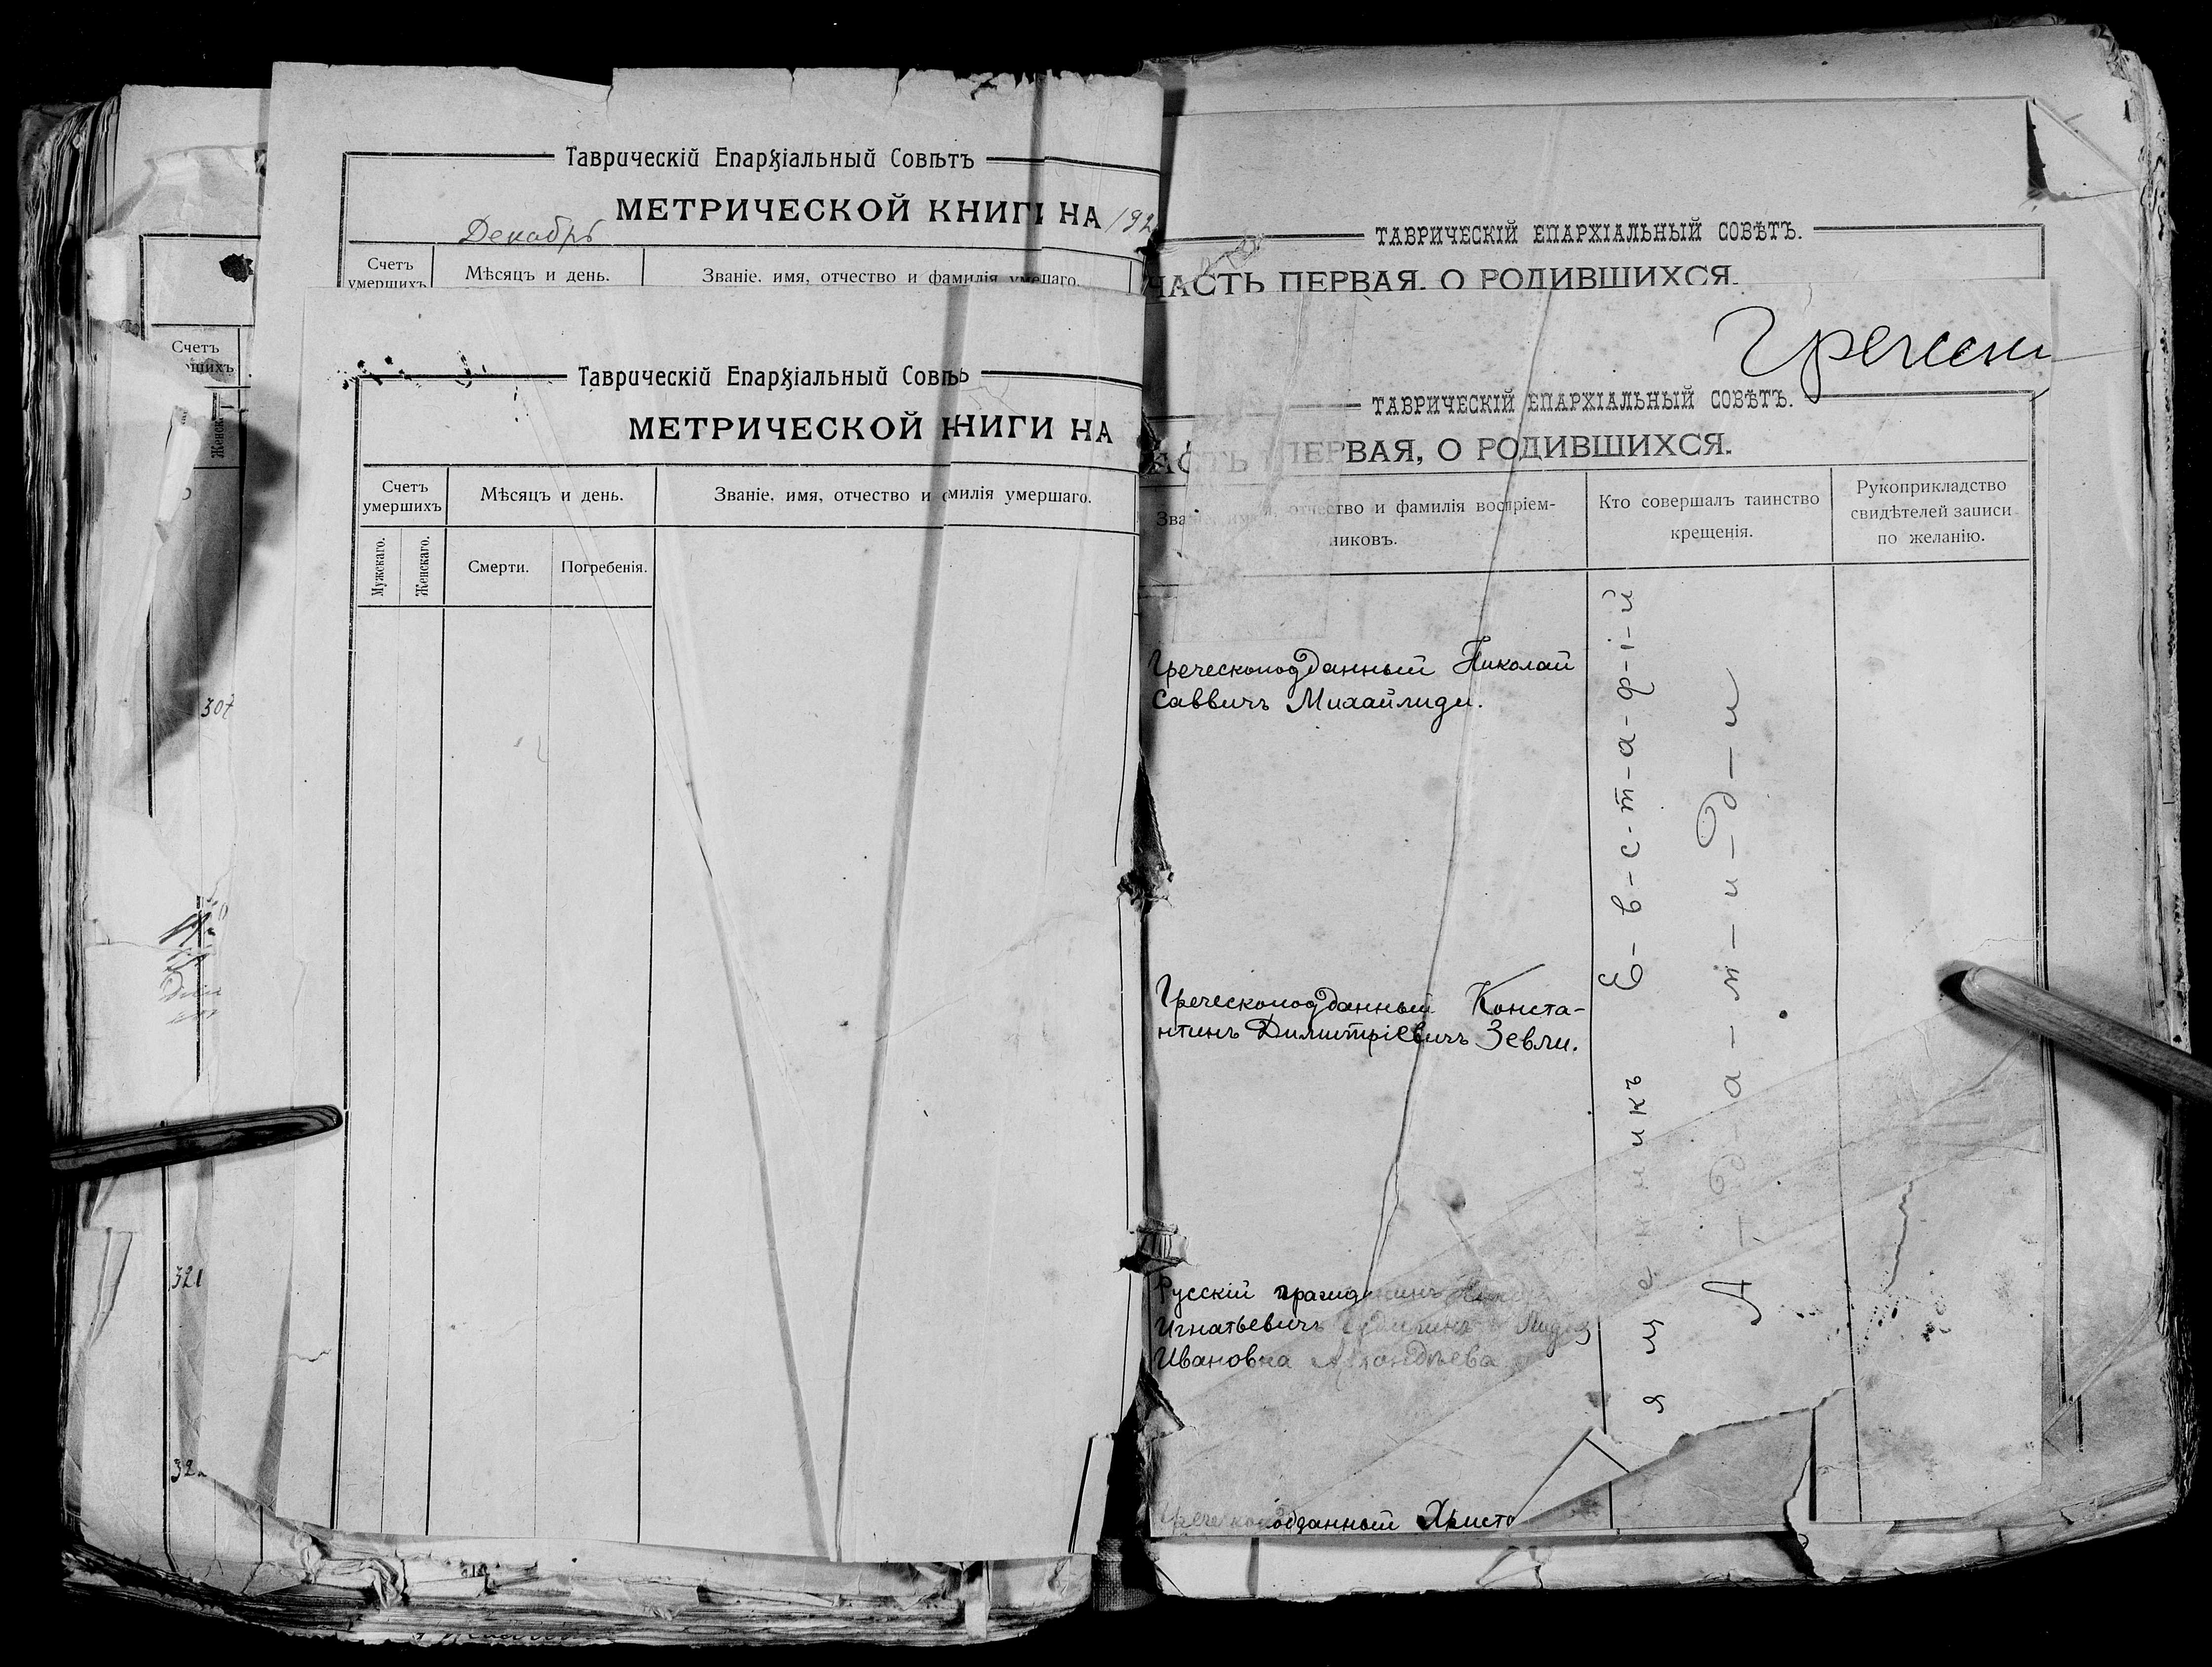 Таврическій Епархіальный Совѣтъ
МЕТРИЧЕСКОЙ КНИГИ НА 192
Декабрь
Счетъ умершихъ
Мѣсяцъ и день.
Званіе, имя, отчество и фамилія умершаго.
Счетъ
Женск
307
321
Таврическій Епархіальный Совѣтъ
МЕТРИЧЕСКОЙ КНИГИ НА
Счетъ умершихъ
Мѣсяцъ и день.
Званіе, имя, отчество и милія умершаго.
Мужскаго.
Женскаго.
Смерти.
Погребенія.
ТАВРИЧЕСКІЙ ЕПАРХІАЛЬНЫЙ СОВѢТЪ.
ЧАСТЬ ПЕРВАЯ, О РОДИВШИХСЯ.
Гречески
ТАВРИЧЕСКІЙ ЕПАРХІАЛЬНЫЙ СОВѢТЪ.
АСТЬ ПЕРВАЯ, О РОДИВШИХСЯ.
Зва отчество и фамилія воспріем-
никовъ.
Кто совершалъ таинство
крещенія.
Рукоприкладство
свидѣтелей записи
по желанію.
Греческоподданный Николай
Саввичъ Михайлиди.
Греческоподданный Конста-
нтинъ Димитріевичъ Зевли.
Русскій гражданинъ
Игнатьевичъ
Ивановна
Греческоподданный Христо
я щ е н н и къ Е-в-с-т-а-ф-і-й